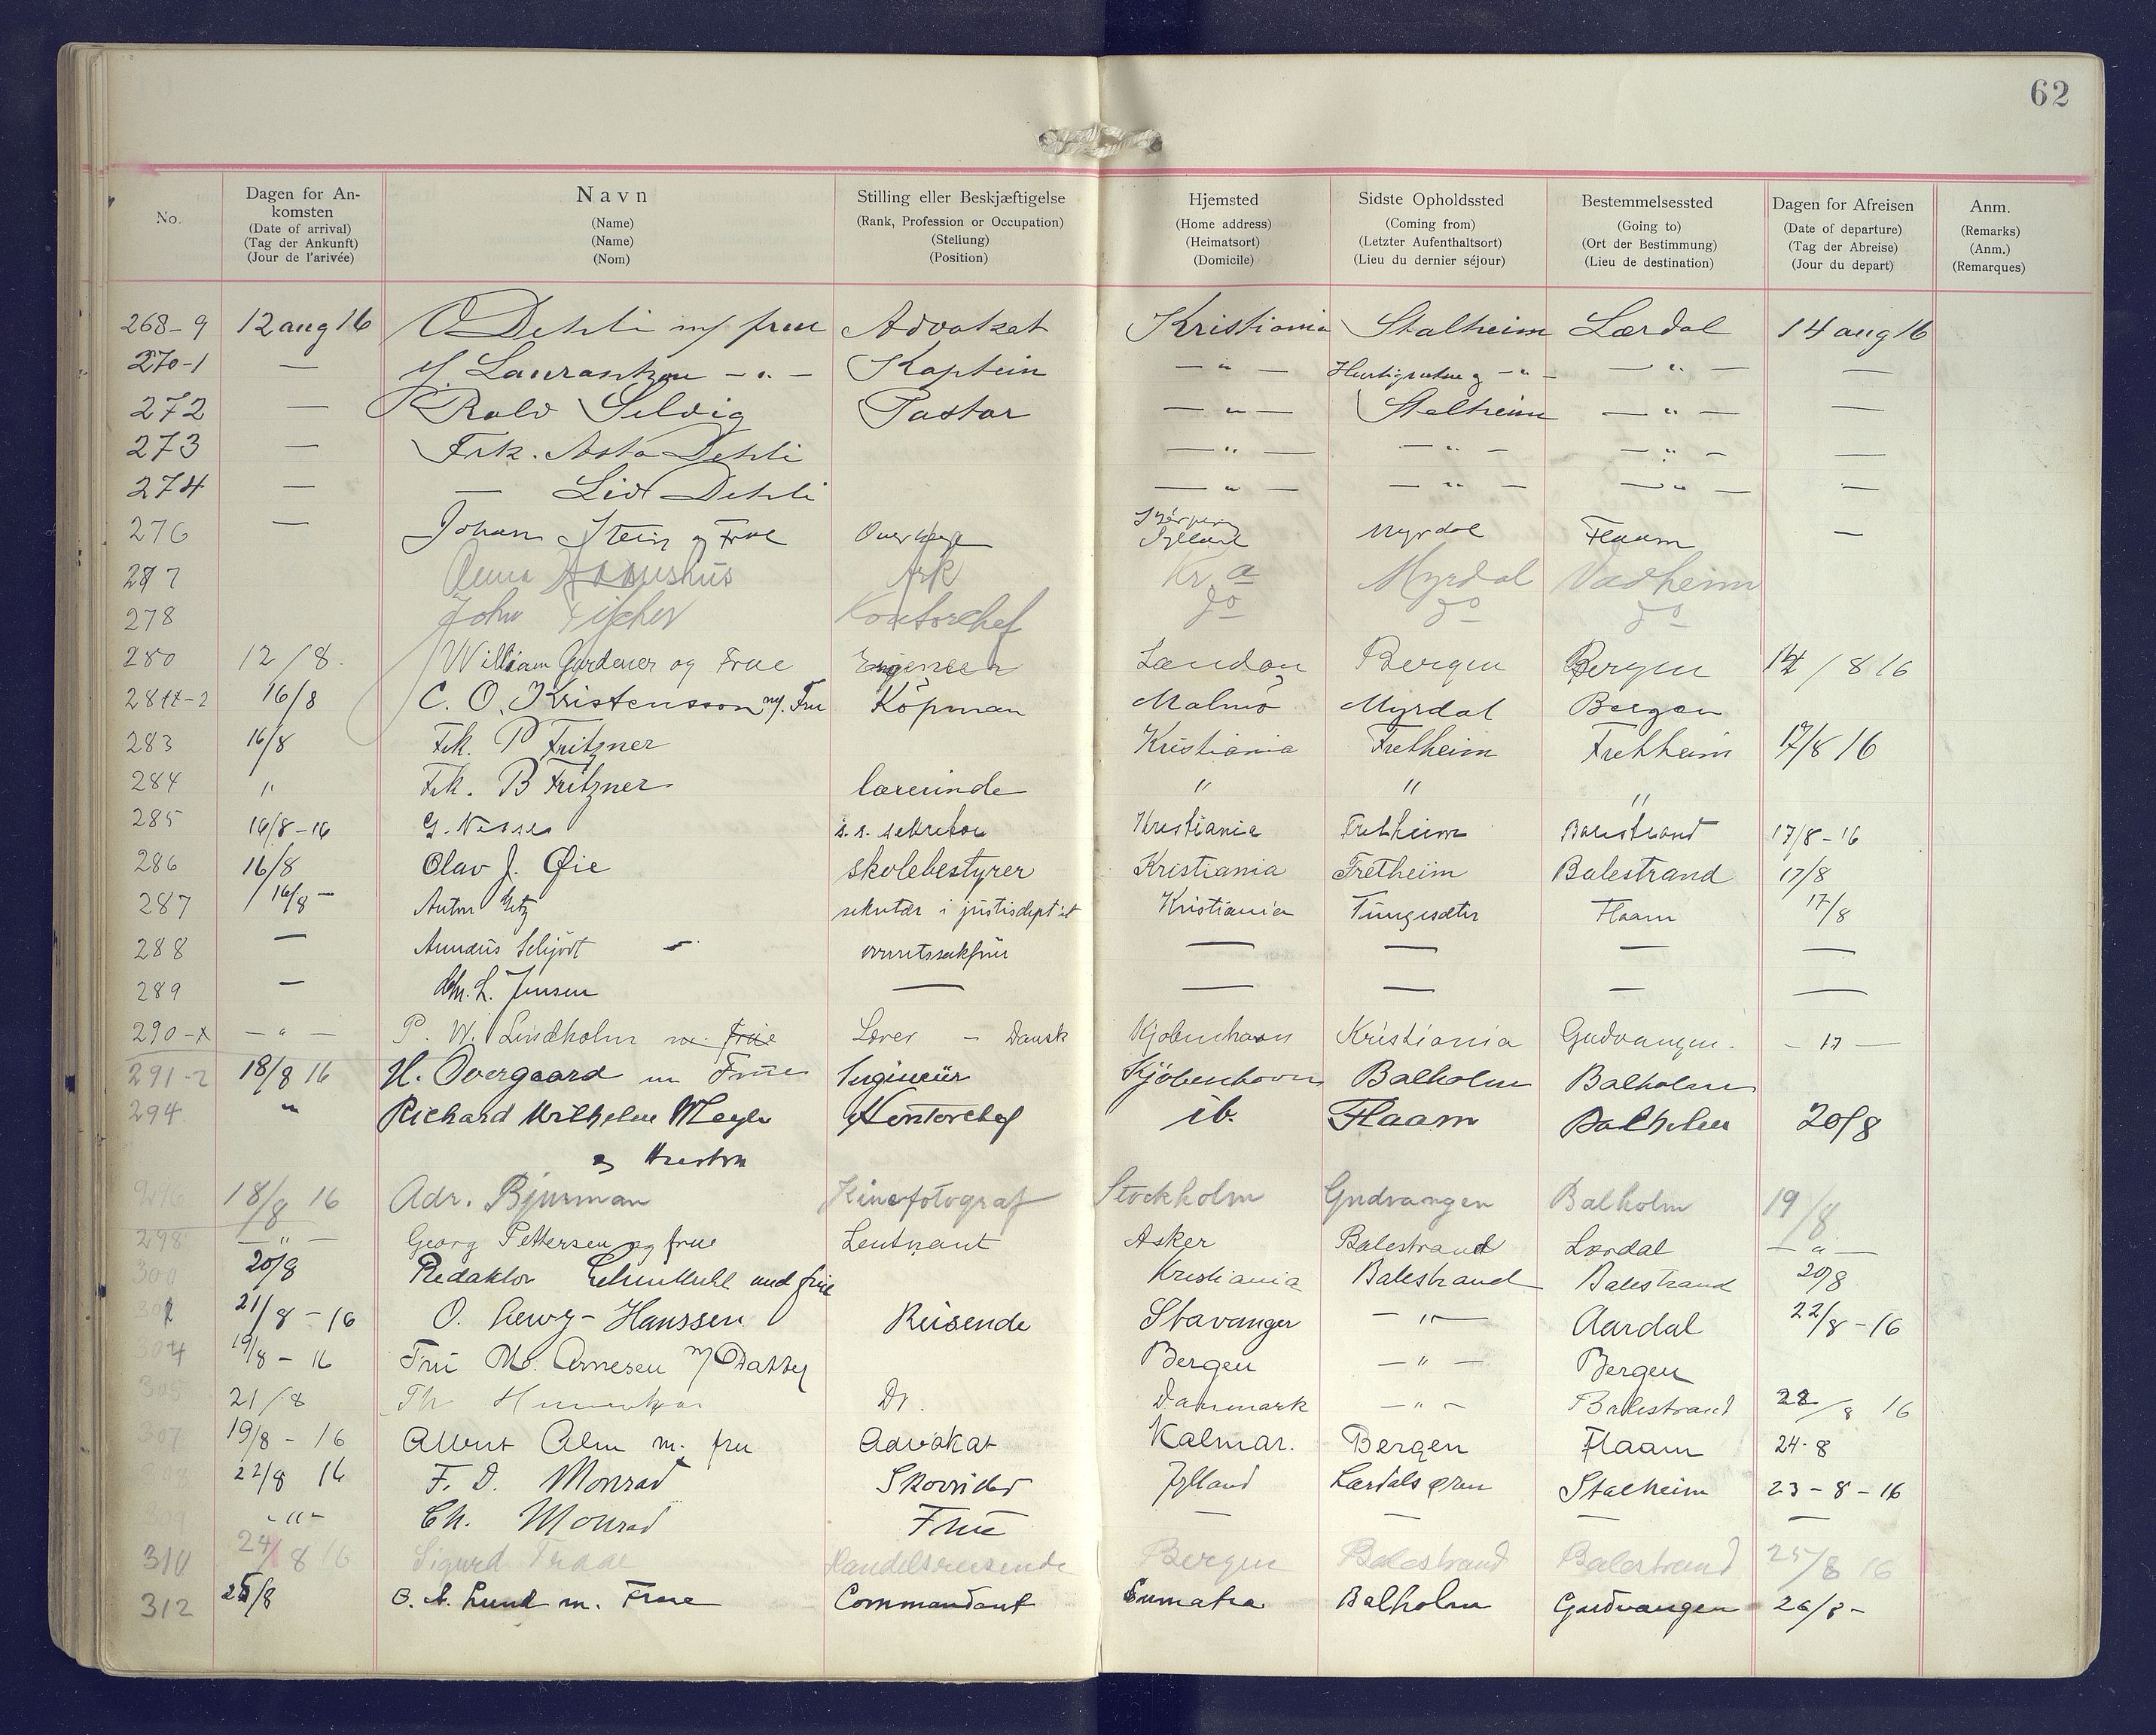 62
No.
Dagen for An-
komsten
(Date of arrival)
(Tag der Ankunft)
(Jour de l'arivée)
Navn
(Name)
(Name)
(Nom)
Stilling eller Beskjæftigelse
(Rank, Profession or Occupation)
(Stellung)
(Position)
Hjemsted
(Home address)
(Heimatsort)
(Domicile)
Sidste Opholdssted
(Coming from)
(Letzter Aufenthaltsort)
(Lieu du dernier séjour)
Bestemmelsessted
(Going to)
(Ort der Bestimmung)
(Lieu de destination)
Dagen for Afreisen
(Date of departure)
(Tag der Abreise)
(Jour du depart)
Anm.
(Remarks)
(Anm.)
(Remarques)
268-9 12 aug 16 O Dehli m/ frue Advokat Kristiania Stalheim Lærdal 14 aug 16
270-1 — — " — Kaptein — " — — " — — " — —
272 — Rolv Selvig Pastor — " — Stalheim — " — —
273 — Frk. Asta Dehli — " — — " — — " — —
274 — — Liv Dehli — " — — " — — " — —
276 — Johan Stein og Frue Jylland Myrdal Flaam —
277 Anna Kr.a Myrdal Vadheim
278 John Kontorchef do do do
280 12/8. William Gardener og Frue Engineer London Bergen Bergen 14/8 16
281-2 16/8 C. O. Kristensson m/. Fru Köpman Malmö Myrdal Bergen
283 16/8 Frk. P Fritzner Kristiania Fretheim Frethheim 17/8 16
284 " Frk. B Fritzner lærerinde " " "
285 16/8-16 G. Nisse s.s. sekretær Kristiania Fretheim Balestrand 17/8-16
286 16/8 Olav J. Øie skolebestyrer Kristiania Fretheim Balestrand 17/8
287 16/8 — Anton sekretær i justisdept'et Kristiania Tungesæter Flaam 17/8
288 — Schjödt — — — —
289 — L. Jensen — — — — —
290-x — " — P. W. Lindholm m. frue Lærer - Dansk Kjøbenhavn Kristiania Gudvangen. — 17 —
291-2 18/8 16 H. Overgaard m Frue Ingeniør Kjöbenhavn Balholm Balholm
294. " Richard Wilhelm Kontorchef ib. Flaam Balholm 20/8
og Hustru
18/8 16 Adr. Bjurman Kinofotograf Stockholm Gudvangen Balholm 19/8
298 — " — Georg Pettersen og frue Leutnant Asker Balestrand Lærdal — " —
300 20/8 Redaktør und frue Kristiania Balestrand Balestrand 20/8
21/8-16 O. Hanssen Reisende Stavanger — " — Aardal 22/8-16
304 19/8-16 Fru M. Arnesen m/ Datter Bergen — " — Bergen
305 21/8 Th Dr. Danmark — " — Balestrand 22/8 16
307 19/8-16 Albert Alm m. fru Advokat Kalmar. Bergen Flaam 24-8
22/8 16 F. D. Monrad Skovrider Jylland Lærdalsøren Stalheim 23-8-16
- " - Ch. Monrad Frue — — — —
310 24/8 16 Sigurd Traae Handelsreisende Bergen Balestrand Balestrand 25/8 16
312 25/8 Lund m. Frue Commandant Sumatra Balholm Gudvangen 26/8-